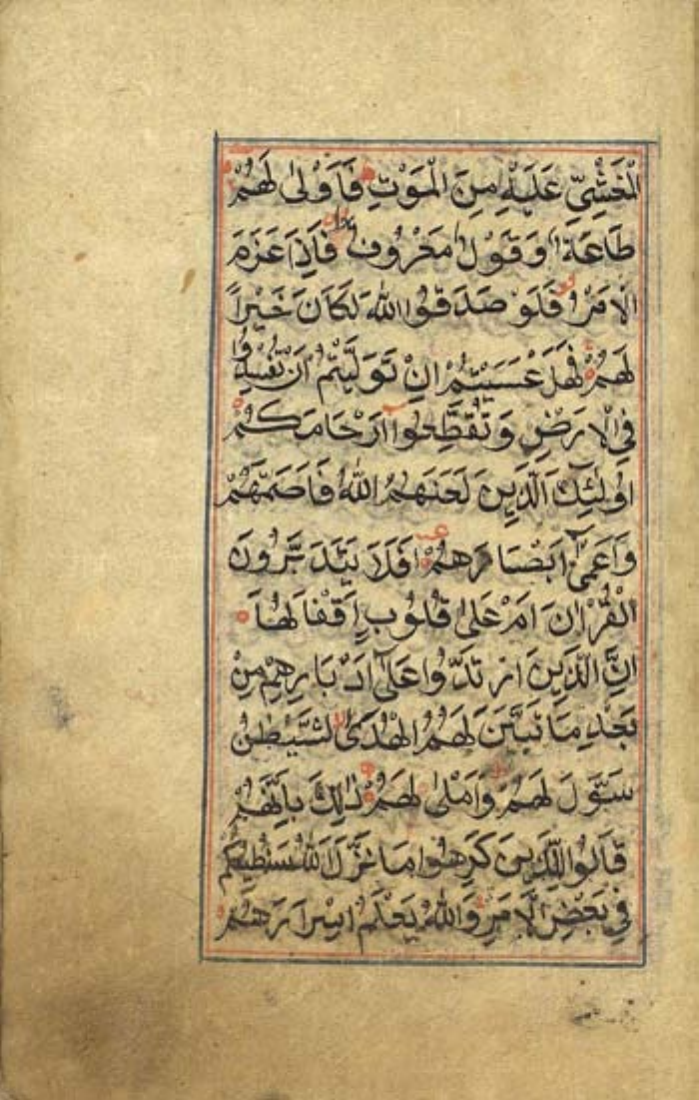 الْمَغْشِيِّ عَلَيْهِ مِنَ الْمَوْتِ فَاَوْلٰى لَهُمْ
طَاعَةٌ وَقَوْلٌ مَعْرُوفٌ فَاِذَا عَزَمَ
الْاَمْرُ فَلَوْ صَدَقُوا اللّٰهَ لَكَانَ خَيْرًا
لَهُمْ فَهَلْ عَسَيْتُمْ اِنْ تَوَلَّيْتُمْ اَنْ تُفْسِدُوا
فِي الْاَرْضِ وَتُقَطِّعُوا اَرْحَامَكُمْ
اُولٰئِكَ الَّذِينَ لَعَنَهُمُ اللّٰهُ فَاَصَمَّهُمْ
وَاَعْمٰى اَبْصَارَهُمْ اَفَلَا يَتَدَبَّرُونَ
الْقُرْاٰنَ اَمْ عَلٰى قُلُوبٍ اَقْفَالُهَا
اِنَّ الَّذِينَ ارْتَدُّوا عَلٰى اَدْبَارِهِمْ مِنْ
بَعْدِ مَا تَبَيَّنَ لَهُمُ الْهُدَى الشَّيْطٰنُ
سَوَّلَ لَهُمْ وَاَمْلٰى لَهُمْ ذٰلِكَ بِاَنَّهُمْ
قَالُوا لِلَّذِينَ كَرِهُوا مَا نَزَّلَ اللّٰهُ سَنُطِيعُكُمْ
فِي بَعْضِ الْاَمْرِ وَاللّٰهُ يَعْلَمُ اِسْرَارَهُمْ